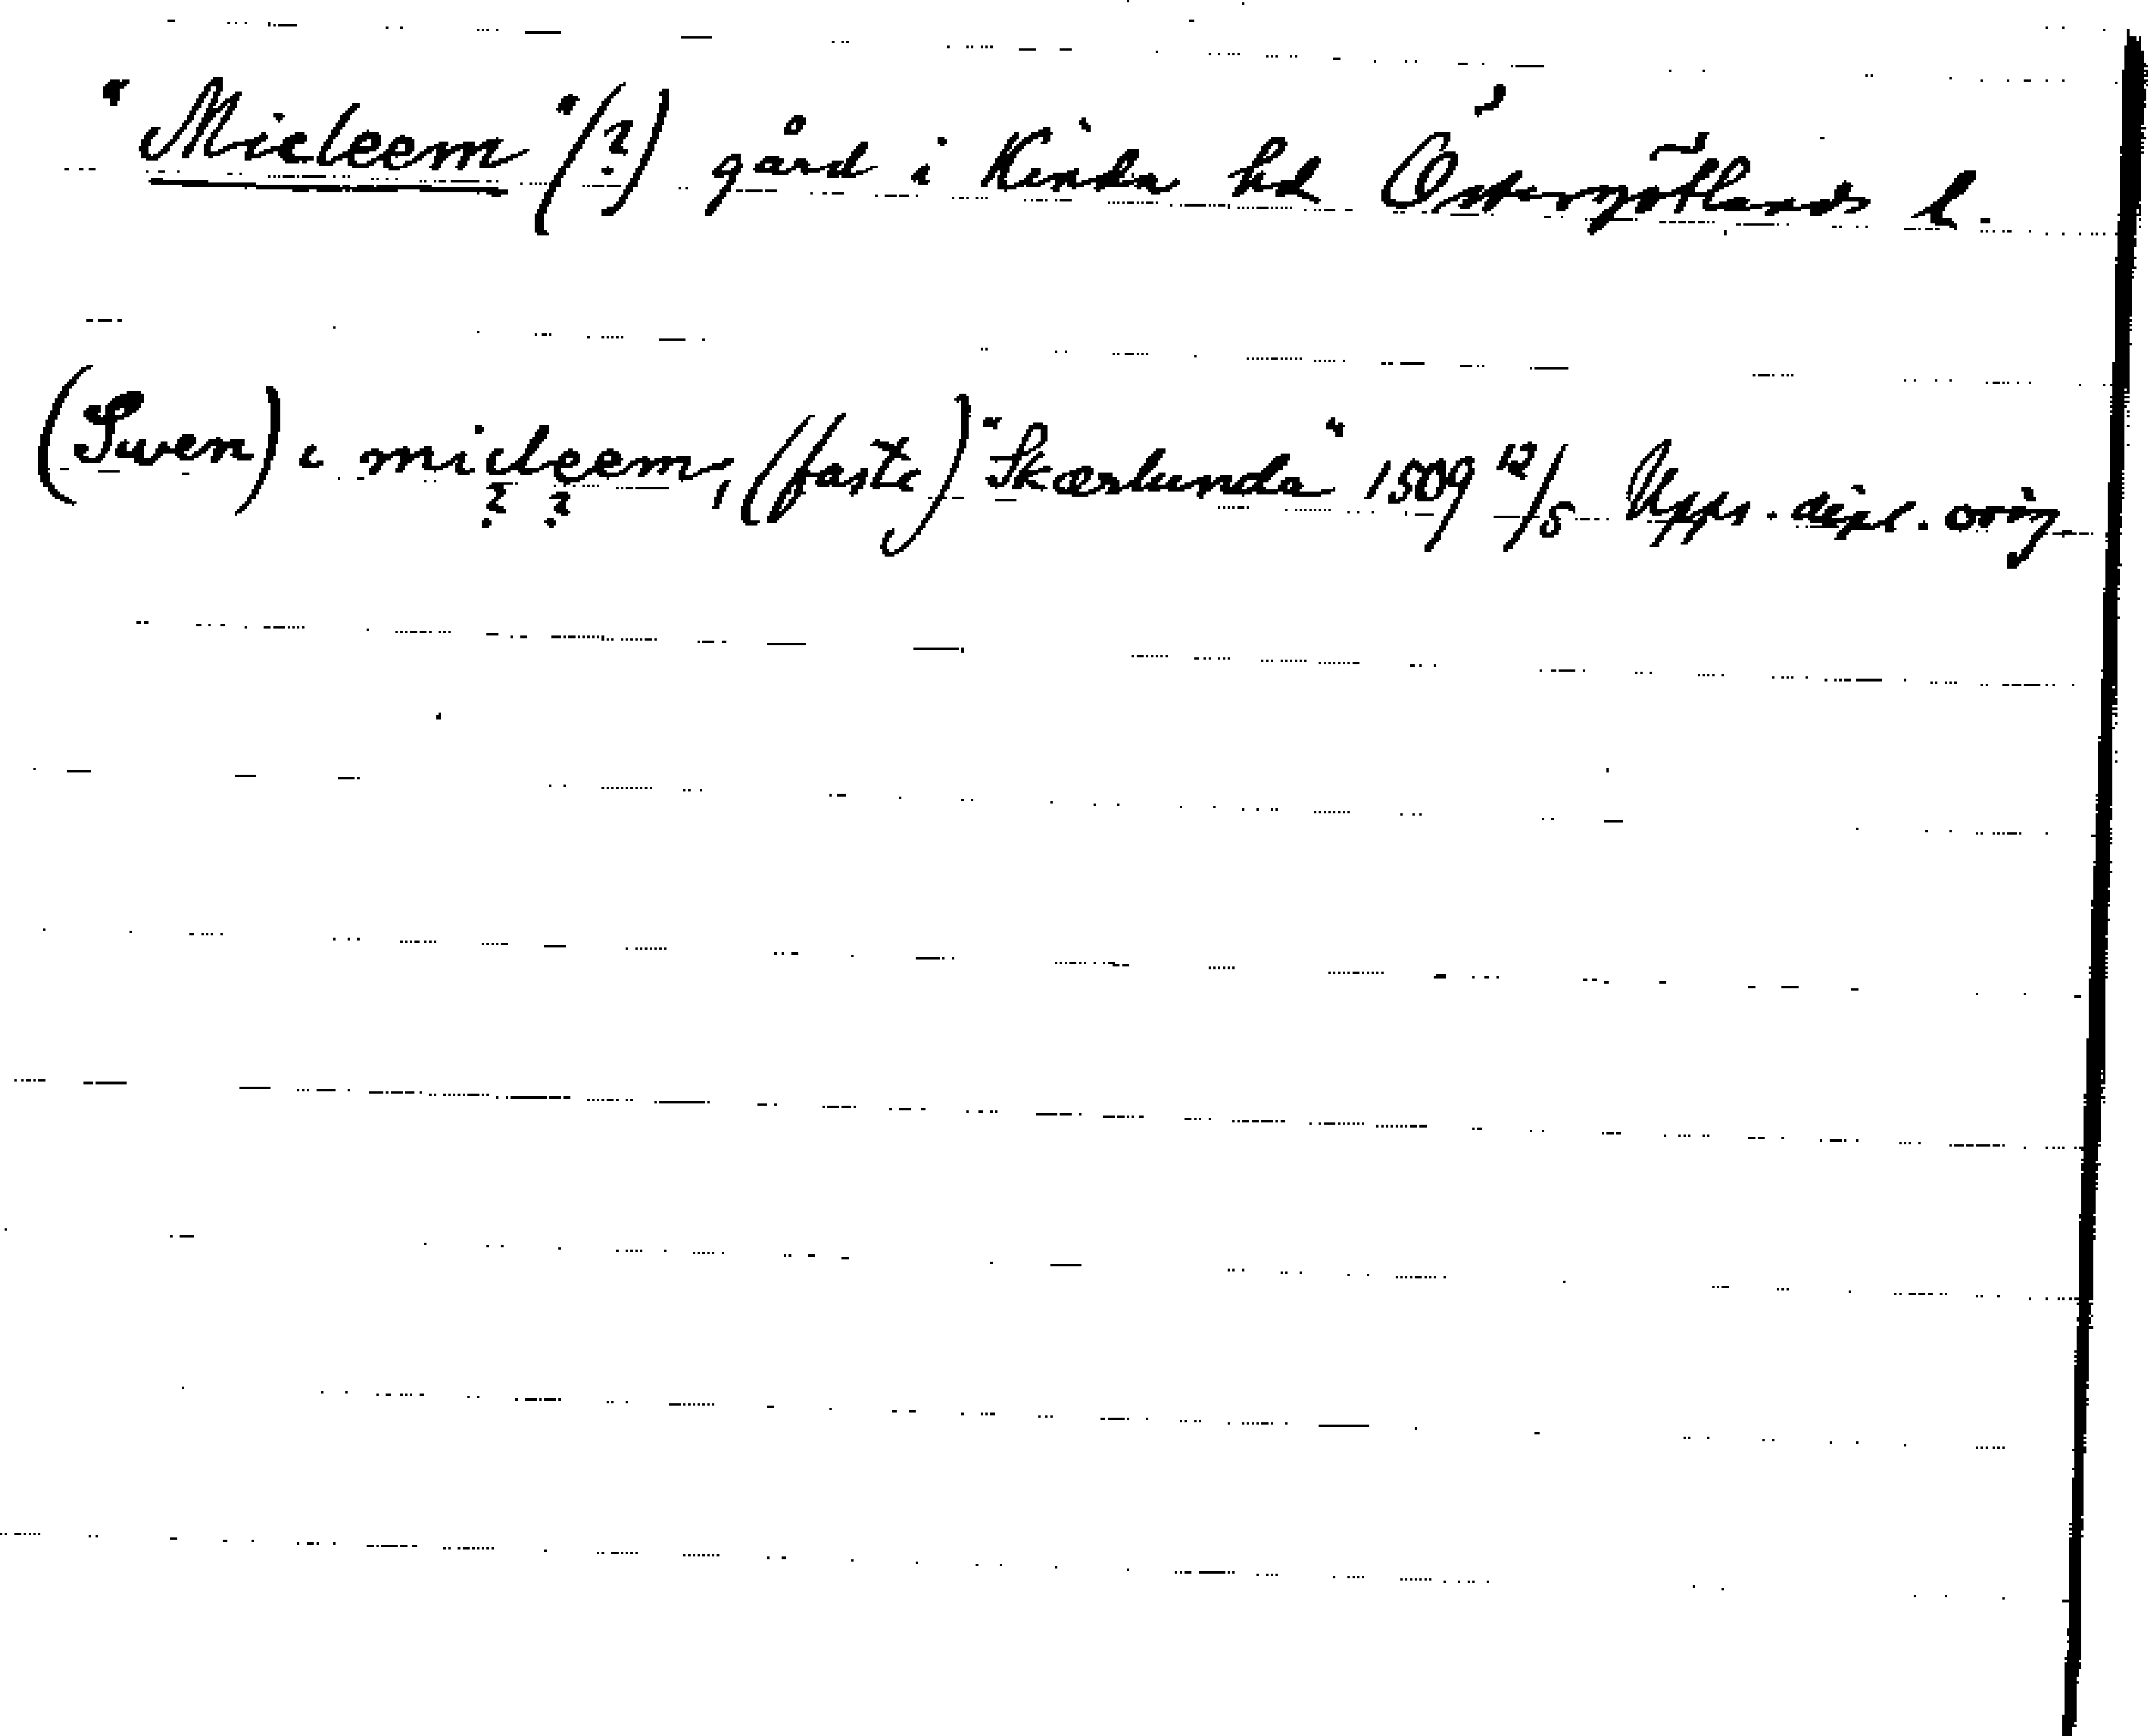 "Micleem" (?) gård i Kinda hd Östergötlands l.
(Swen) i micleem, (faste) "Skærlunda" 1509 12/5 Upps. dipl. orig
? ?